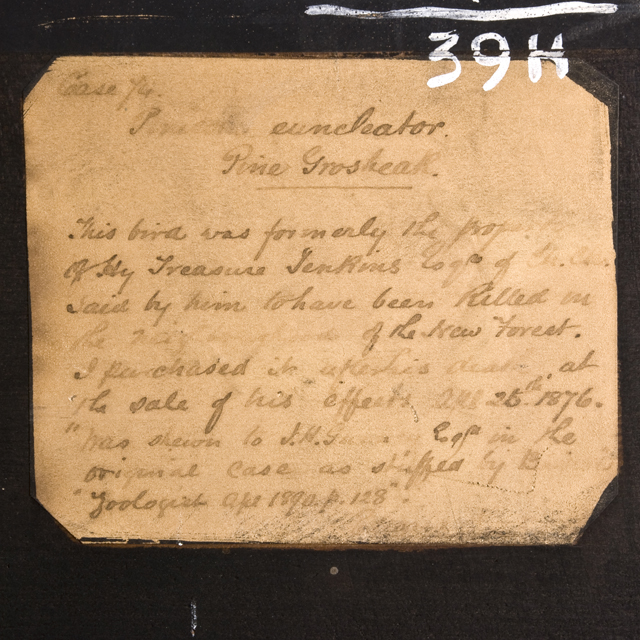 39H
Case 74.
enucleator.
Pine Grosbeak.
This bird was formerly the
of Hy Treasure Jenkins Esqre of
said by him to have been killed in
the of the New Forest.
I purchased it after his death, at
the sale of his effects 1876.
"Was shewn to J.H. Gurney Esqre in the
original case as stuffed by
"Zoologist 1890. p. 128".